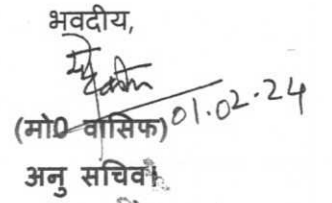 भवदीय,
01.02.24
(मो0 वासिफ)
अनु सचिव।